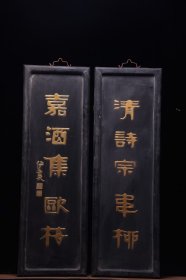 清詩宗韋柳
嘉酒集歐梅